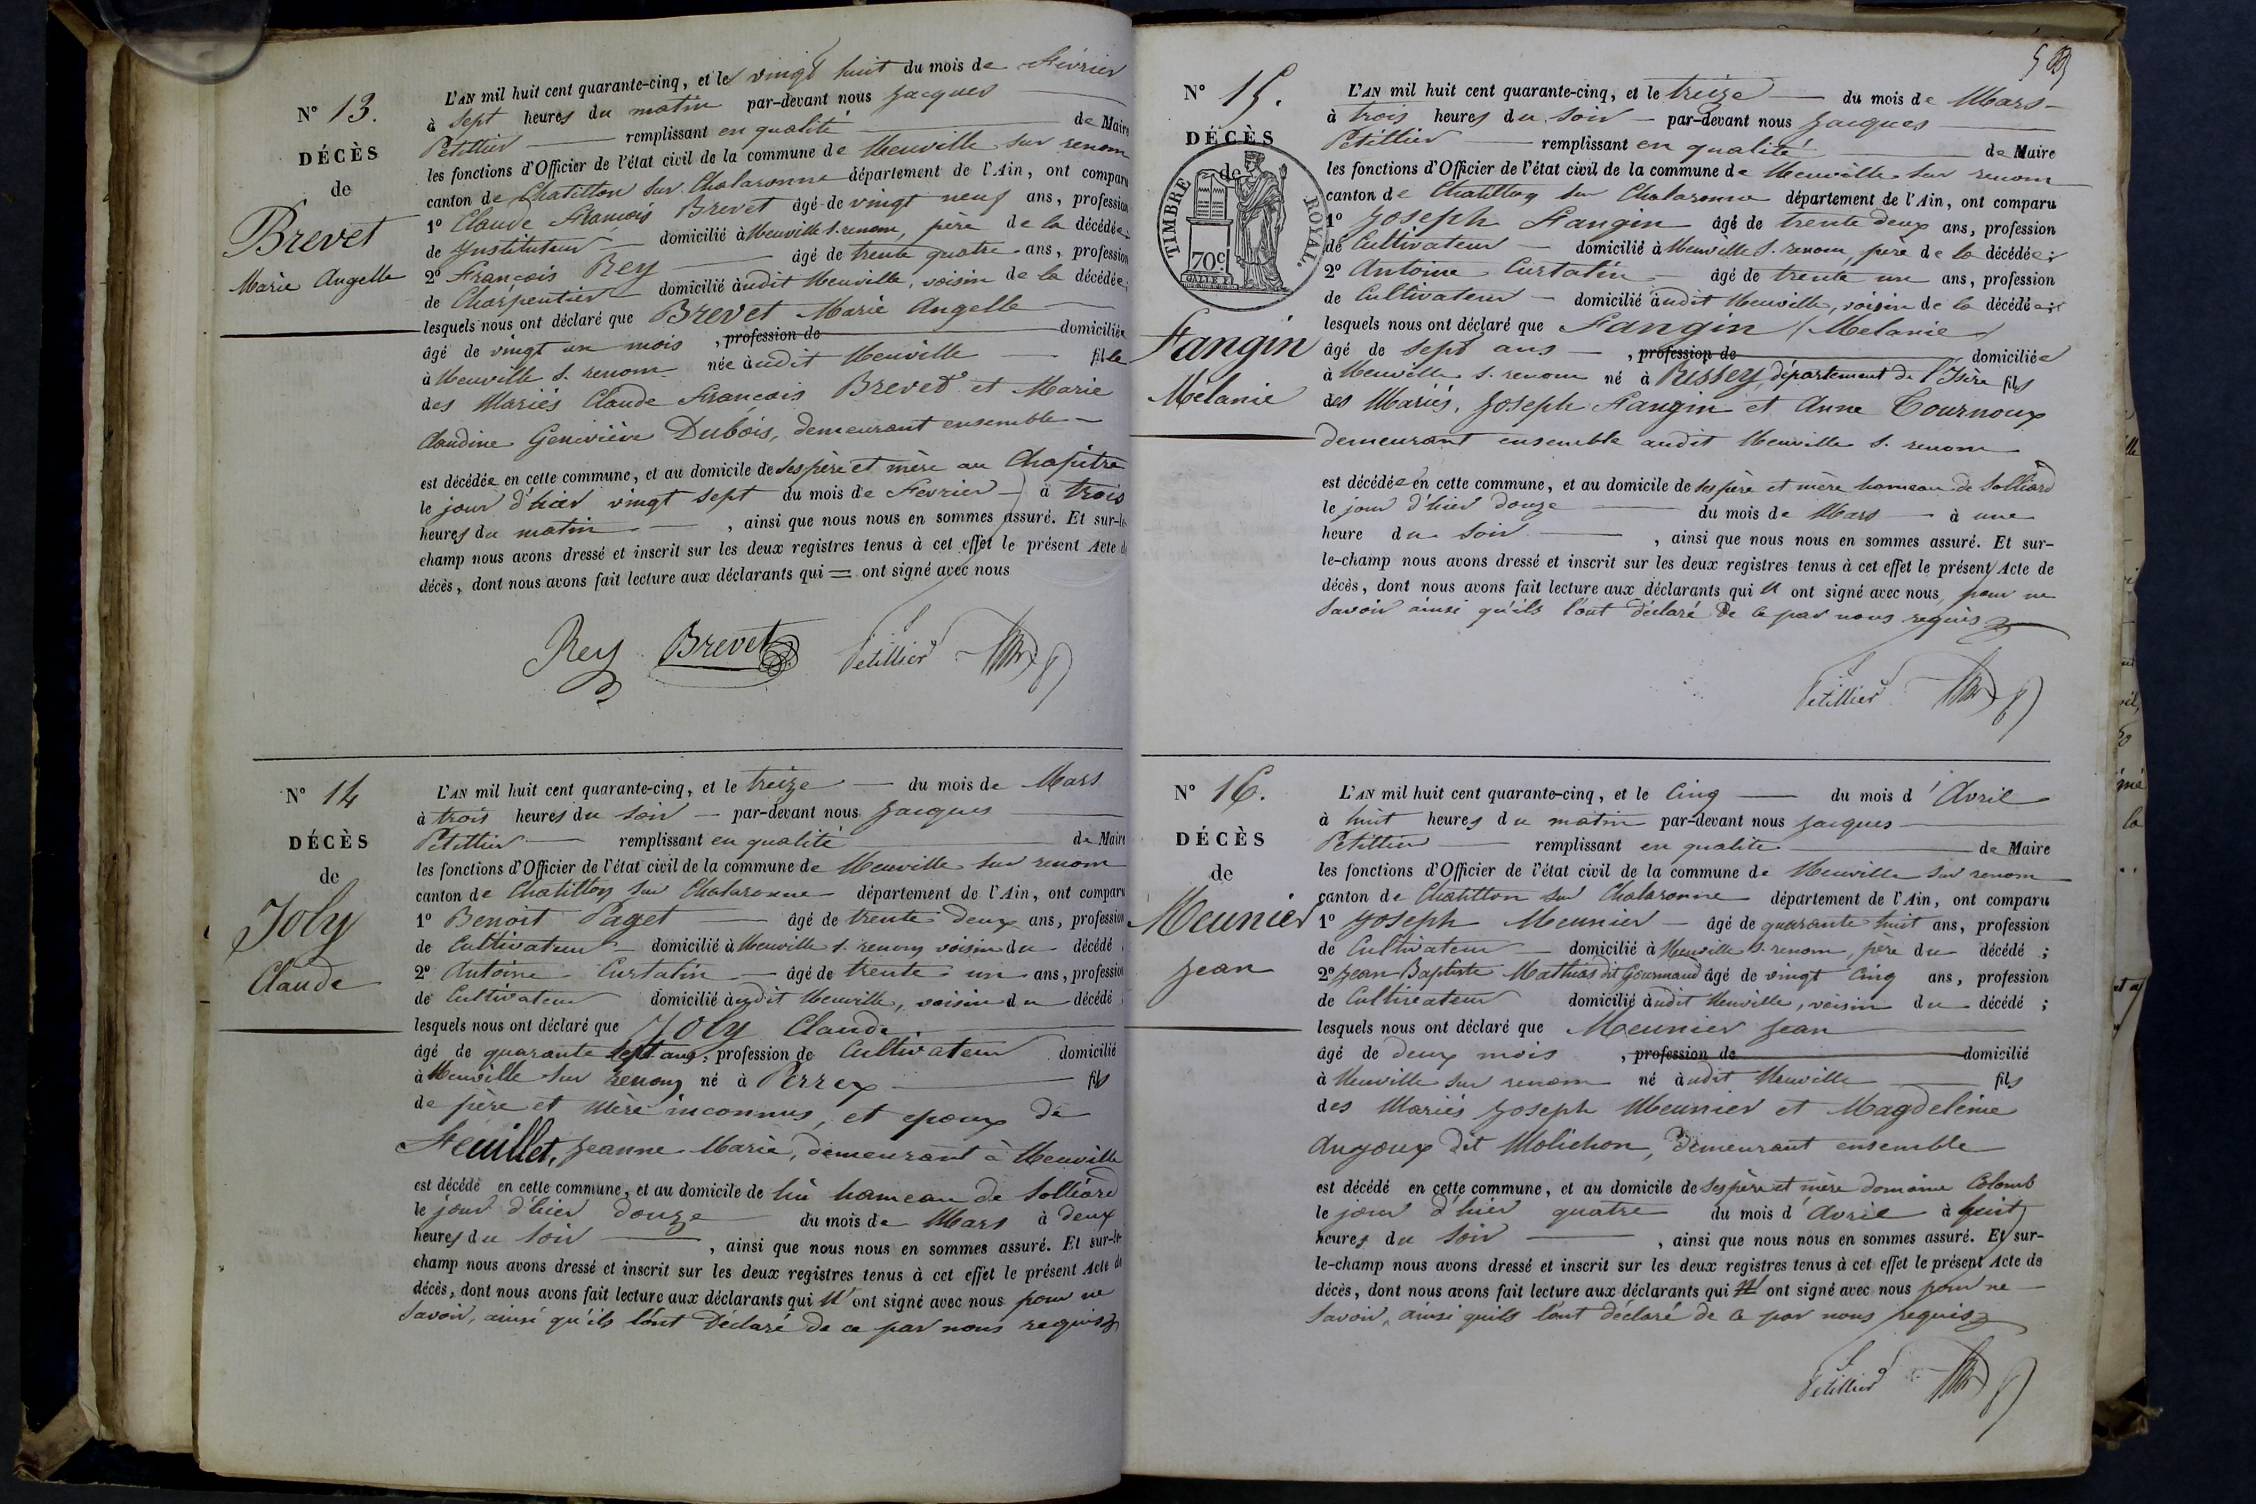 N° 13.
DÉCÈS
de
Brevet
Marie Angelle
L'AN mil huit cent quarante-cinq, et le vingt huit du mois de Février
à sept heures du matin par-devant nous Jacques
Petillier remplissant en qualité de Maire
les fonctions d'Officier de l'état civil de la commune de Neuville sur renom
canton de Chatillon sur Chalaronne département de l'Ain, ont comparu
1° Claude François Brevet âgé de vingt neuf ans, profession
de Instituteur domicilié à Neuville s. renom, père de la décédée;
2° François Rey âgé de trente quatre ans, profession
de Charpentier domicilié audit Neuville, voisin de la décédée;
lesquels nous ont déclaré que Brevet Marie Angelle
âgé de vingt un mois, profession de domiciliée
à Neuville s. renom née audit Neuville fille
des Mariés Claude François Brevet et Marie
Claudine Geneviève Dubois, demeurant ensemble
est décédée en cette commune, et au domicile de ses père et mère au Chapitre
le jour d'hier vingt sept du mois de Fevrier à trois
heures du matin, ainsi que nous nous en sommes assuré. Et sur-le-
champ nous avons dressé et inscrit sur les deux registres tenus à cet effet le présent Acte de
décès, dont nous avons fait lecture aux déclarants qui = ont signé avec nous
Rey Brevet Petillier
N° 14
DÉCÈS
de
Joly
Claude
L'AN mil huit cent quarante-cinq, et le treize du mois de Mars
à trois heures du soir par-devant nous Jacques
Petillier remplissant en qualité de Maire
les fonctions d'Officier de l'état civil de la commune de Neuville sur renom
canton de Chatillon sur Chalaronne département de l'Ain, ont comparu
1° Benoit Paget âgé de trente deux ans, profession
de Cultivateur domicilié à Neuville s. renom voisin du décédé
2° Antoine Curtalin âgé de trente un ans, profession
de Cultivateur domicilié audit Neuville, voisin du décédé
lesquels nous ont déclaré que Joly Claude
âgé de quarante sept ans, profession de Cultivateur domicilié
à Neuville sur renom né à Perrex fils
de père et mère inconnus, et epoux de
Feuillet, Jeanne Marie, demeurant à Neuville
est décédé en cette commune, et au domicile de lui hameau de Solliard
le jour d'hier douze du mois de Mars à deux
heures du soir, ainsi que nous nous en sommes assuré. Et sur-le-
champ nous avons dressé et inscrit sur les deux registres tenus à cet effet le présent Acte de
décès, dont nous avons fait lecture aux déclarants qui n' ont signé avec nous pour ne
savoir, ainsi qu'ils l'ont déclaré de ce par nous requis
N° 15.
DÉCÈS
de
TIMBRE ROYAL.
70c.
Fangin
Mélanie
L'AN mil huit cent quarante-cinq, et le treize du mois de Mars
à trois heures du soir par-devant nous Jacques
Petillier remplissant en qualité de Maire
les fonctions d'Officier de l'état civil de la commune de Neuville sur renom
canton de Chatillon sur Chalaronne département de l'Ain, ont comparu
1° Joseph Fangin âgé de trente deux ans, profession
de Cultivateur domicilié à Neuville s. renom, père de la décédée;
2° Antoine Curtalin âgé de trente un ans, profession
de Cultivateur domicilié audit Neuville, voisin de la décédée;
lesquels nous ont déclaré que Fangin Melanie
âgé de sept ans, profession de domiciliée
à Neuville s. renom né à Rissey, département de l'Isère fils
des Mariés, Joseph Fangin et Anne Tournoux
demeurant ensemble audit Neuville s. renom
est décédée en cette commune, et au domicile de ses père et mère hameau de Solliard
le jour d'hier douze du mois de Mars à une
heure du soir, ainsi que nous nous en sommes assuré. Et sur-
le-champ nous avons dressé et inscrit sur les deux registres tenus à cet effet le présent Acte de
décès, dont nous avons fait lecture aux déclarants qui n' ont signé avec nous, pour ne
savoir ainsi qu'ils l'ont déclaré de ce par nous requis
Petillier
N° 16.
DÉCÈS
de
Meunier
Jean
L'AN mil huit cent quarante-cinq, et le Cinq du mois d'Avril
à huit heures du matin par-devant nous Jacques
Petillier remplissant en qualité de Maire
les fonctions d'Officier de l'état civil de la commune de Neuville sur renom
canton de Chatillon sur Chalaronne département de l'Ain, ont comparu
1° Joseph Meunier âgé de quarante huit ans, profession
de Cultivateur domicilié à Neuville s. renom, père du décédé;
2° Jean-Baptiste Mathias dit Gourmand âgé de vingt Cinq ans, profession
de Cultivateur domicilié audit Neuville, voisin du décédé;
lesquels nous ont déclaré que Meunier Jean
âgé de deux mois, profession de domicilié
à Neuville sur renom né audit Neuville fils
des Mariés Joseph Meunier et Magdeleine
Anjoux dit Molichon, demeurant ensemble
est décédé en cette commune, et au domicile de ses père et mère domaine Colomb
le jour d'hier quatre du mois d'Avril à huit
heures du soir, ainsi que nous nous en sommes assuré. Et sur-
le-champ nous avons dressé et inscrit sur les deux registres tenus à cet effet le présent Acte de
décès, dont nous avons fait lecture aux déclarants qui n' ont signé avec nous pour ne
savoir, ainsi quils l'ont déclaré de ce par nous requis
Petillier